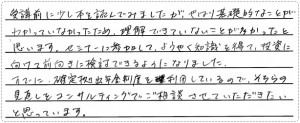 受講前に少し本を読んでみましたが、やはり基礎的なことが
わかっていなかったため、理解できていないことが多かったと
思います。セミナーに参加して、ようやく知識を得て、投資に
向けて前向きに検討できるようになりました。
すでに、確定拠出年金制度を利用しているので、そちらの
見直しをコンサルティングでご相談させていただきたい
と思っています。